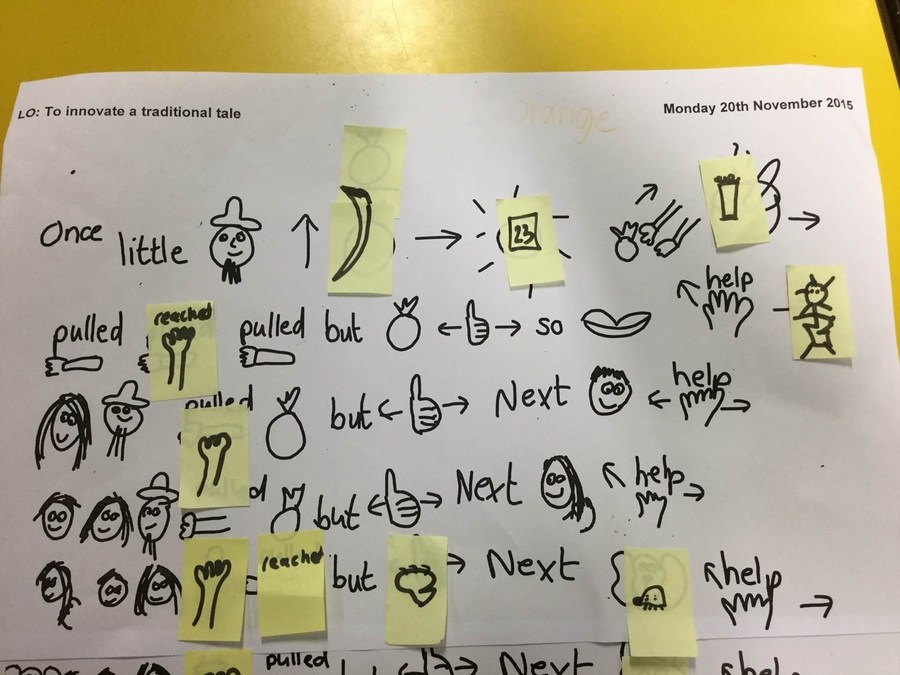 LO: To innovate a traditional tale Monday 20th November 2015
orange
Once little 23
help
pulled reached pulled but so
pulled but Next help
but Next help
reached but Next help
pulled Next